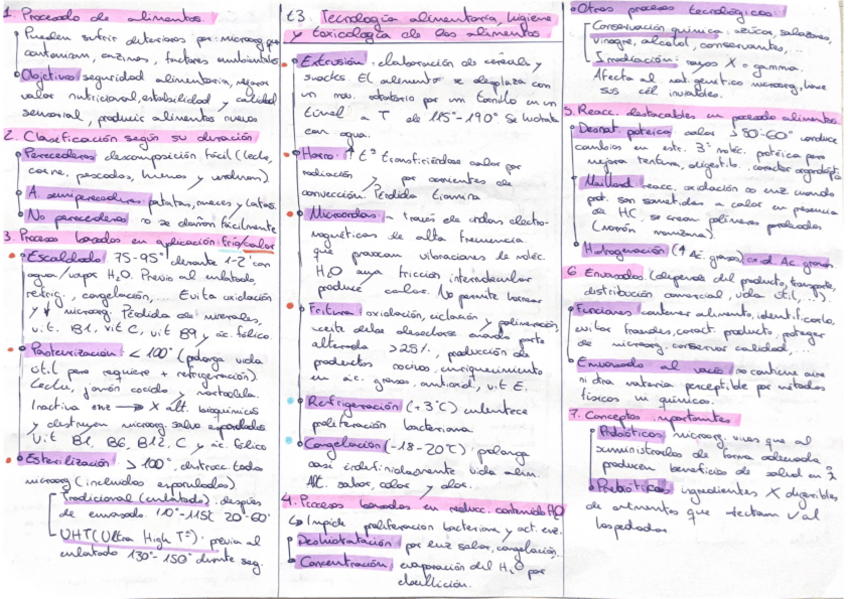 1. Procesado de alimentos.
Pueden sufrir deterioros por: microorg que
contaminan, enzimas, factores ambientales
Objetivos: seguridad alimentaria, mejorar
valor nutricional, estabilidad y calidad
sensorial, producir alimentos nuevos
2. Clasificación según su duración
Perecederos: descomposición fácil (leche,
carne, pescados, huevos y verduras)
A. semiperecederos: patatas, nueces y latas.
No perecederos: no se dañan fácilmente
3. Procesos basados en aplicación frío/calor
Escaldado: 75-95° durante 1-2' con
agua/vapor H2O. Previo al enlatado
refrig., congelación,... Evita oxidación
y ↓ microorg. Pérdida de minerales,
vit. B1, vit C, vit B9 y ác. fólico.
Pasteurización: < 100° (prolonga vida
útil pero requiere + refrigeración).
Leche, jamón cocido y mortadela.
Inactiva enz → X alt. bioquímicos
y destruyen microorg salvo esporulados
Vit B1, B6, B12, C y ác. fólico
Esterilización: > 100°, destruye todos
microorg (incluidos esporulados)
Tradicional (enlatado): después
de envasado. 110°-115° 20-60'
UHT (Ultra High Tª): previo al
enlatado 130°-150° durante seg.
t.3. Tecnología alimentaria, higiene
y toxicología de los alimentos
Extrusión: elaboración de cereales y
snacks. El alimento se desplaza con
un mov. rotatorio por un tornillo en un
túnel a T de 115°-190° Se hidrata
con agua.
Horno: ↑ tª transfiriéndose calor por
radiación y por corrientes de
convección. Pérdida tiamina
Microondas: a través de ondas electro-
magnéticas de alta frecuencia
que provocan vibraciones de moléc.
H2O cuya fricción intermolecular
produce calor. No permite hornear
Fritura: oxidación, ciclación y polimerización,
aceite debe desecharse cuando parte
alterada > 25%, producción de
productos nocivos, enriquecimiento
en ác. grasos, antioxid, vit E.
Refrigeración (+3°C) enlentece
proliferación bacteriana.
Congelación (-18-20°C) prolonga
casi indefinidamente vida alim.
Alt. sabor, color y olor.
4. Procesos basados en reducc. contenido H2O
↳ Impide proliferación bacteriana y act. enz.
Deshidratación: por luz solar, congelación,...
Concentración: evaporación del H2O por
ebullición.
Otros procesos tecnológicos:
Conservación química: azúcar, salazones,
vinagre, alcohol, conservantes,...
Irradiación: rayos X o gamma.
Afecta al mat. genético microorg, hace
sus cél inviables.
5. Reacc. destacables en procesado alimentos
Desnat. proteica: calor > 50-60° conduce
cambios en estr. 3ª moléc. proteica para
mejora textura, digestib. carácter organolépto
Maillard: reacc. oxidación cuando
prot. son sometidas a calor en presencia
de HC, se crean polímeros pardeados
(marrón manzana).
Hidrogenación (↑ Ac. grasos Ac. grasos
6. Envasados (depende del producto, transporte,
distribución comercial, vida útil,...)
Funciones: contener alimento, identificarlo,
evitar fraudes, caract. producto, proteger
de microorg, conservar calidad,...
Envasado al vacío: no contiene aire
ni otra materia perceptible por métodos
físicos ni químicos.
7. Conceptos importantes
Probióticos: microorg vivos que al
suministrarlos de forma adecuada
producen beneficios de salud en
Prebióticos: ingredientes X digeribles
de alimentos que afectan al
hospedador